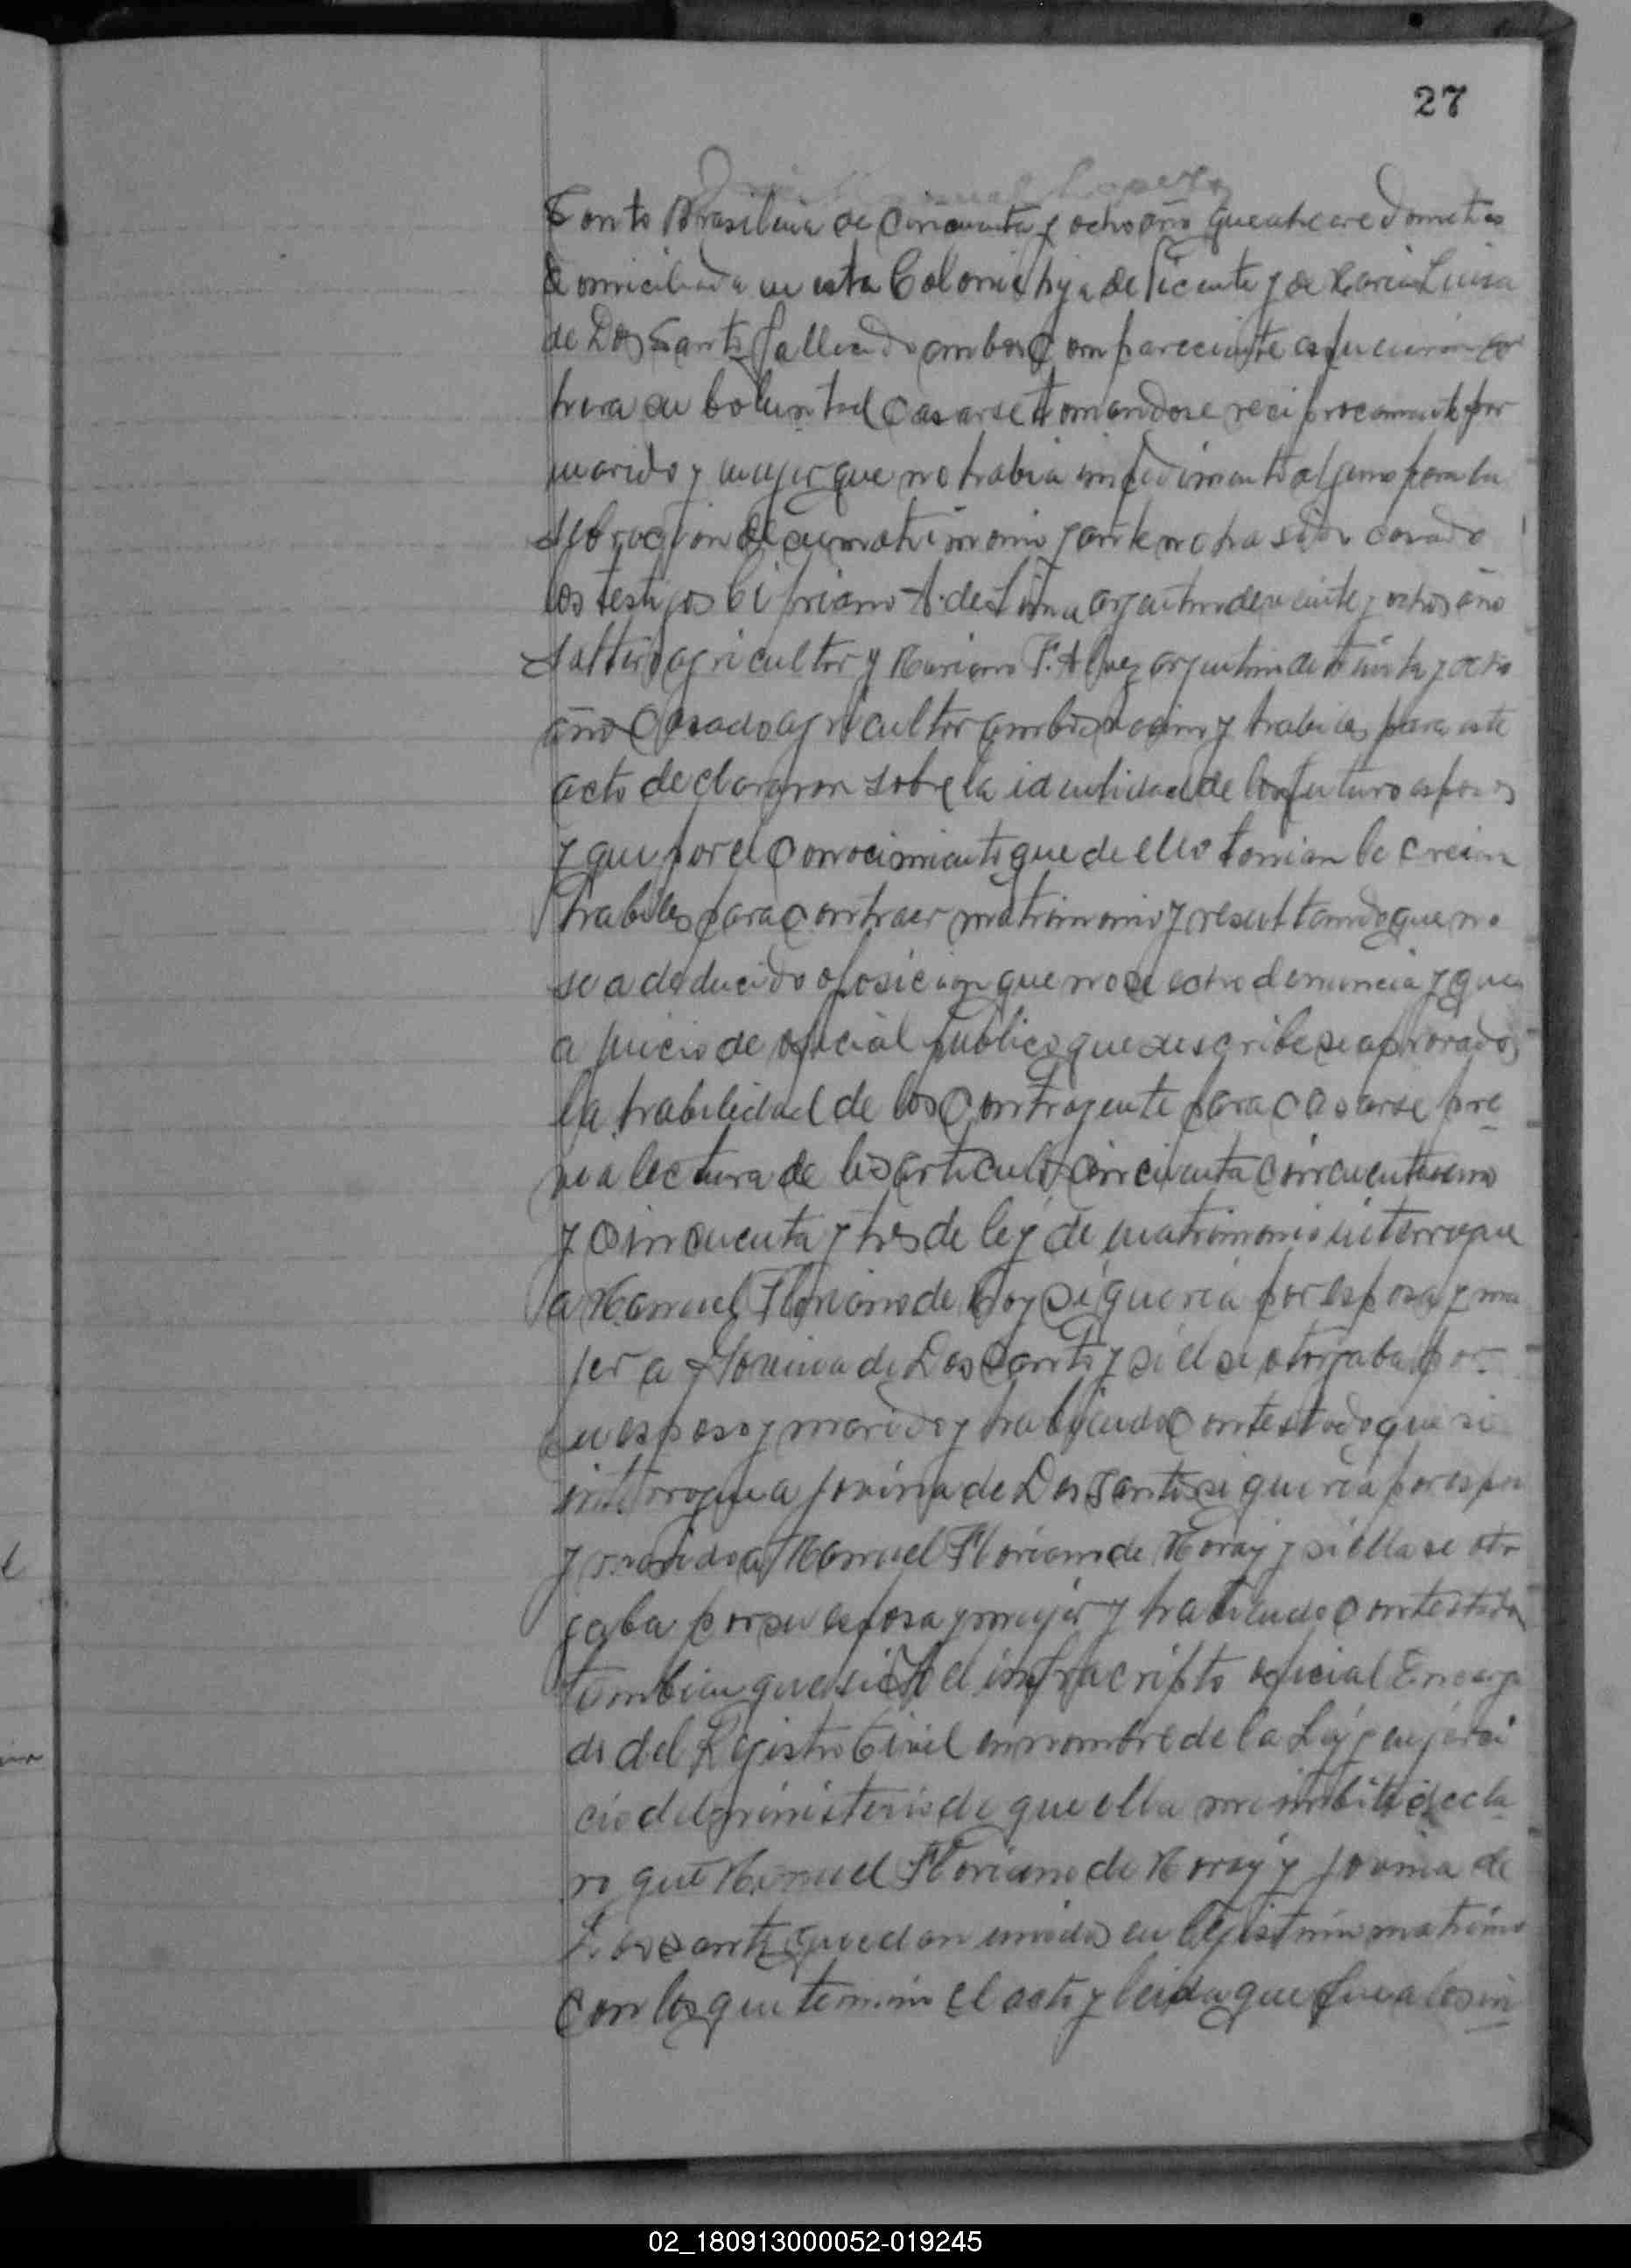 27
Santo Brasilera de cincuenta y ocho año quehacere domestico
domiciliada en esta Colonia hija de Vicente y de Maria Luisa
de Dos Santo fallecido ambos compareciente
su boluntad casarse tomandose reciprocamente por
marido y mujer que no habia impedimento alguno para la
de su matrimonio y ante no ha sido casado
los testigos Cipriano A. de Lima argentino de veinte y ocho año
Soltero agricultor y Mariano F. Alvez argentino de treinta y ocho
año Casado agricultor ambos vecino y habiles para este
acto declararon sobre la identidad de los futuro esposos
y que por el conocimiento que de ello tenian lo creian
habiles para contraer matrimonio y resultando que no
se a deducido oposicion que no se echo denuncia y que
a juicio de oficial publico que suscribe se a provado
la habilidad de los contrajente para casarse pre
via lectura de los articulo cincuenta cincuenta uno
y cincuenta y tres de ley de matrimonio interrogue
a Manuel Floriano de Moray si queria por esposa y mu
jer a Jovina de Dos Santo y si el se otorjaba por
su esposo y marido y habiendo contestado que si
interrogue a Jovina de Dos Santo si queria por espo
y marido a Manuel Floriano de Moray y si ella se otor
jaba por su esposa y mujer y habiendo contestado
tambien que si el infracripto oficial Encarga
do del Rejistro Civil en nombre de la Ley y en ejerci
cio del ministerio de que ella me inbiste decla
ro que Manuel Floriano de Moray y Jovina de
Dos Santo quedan unidos en lejistimo matrimo
con los que termino el acto y leida que fue a los in
02_180913000052-019245